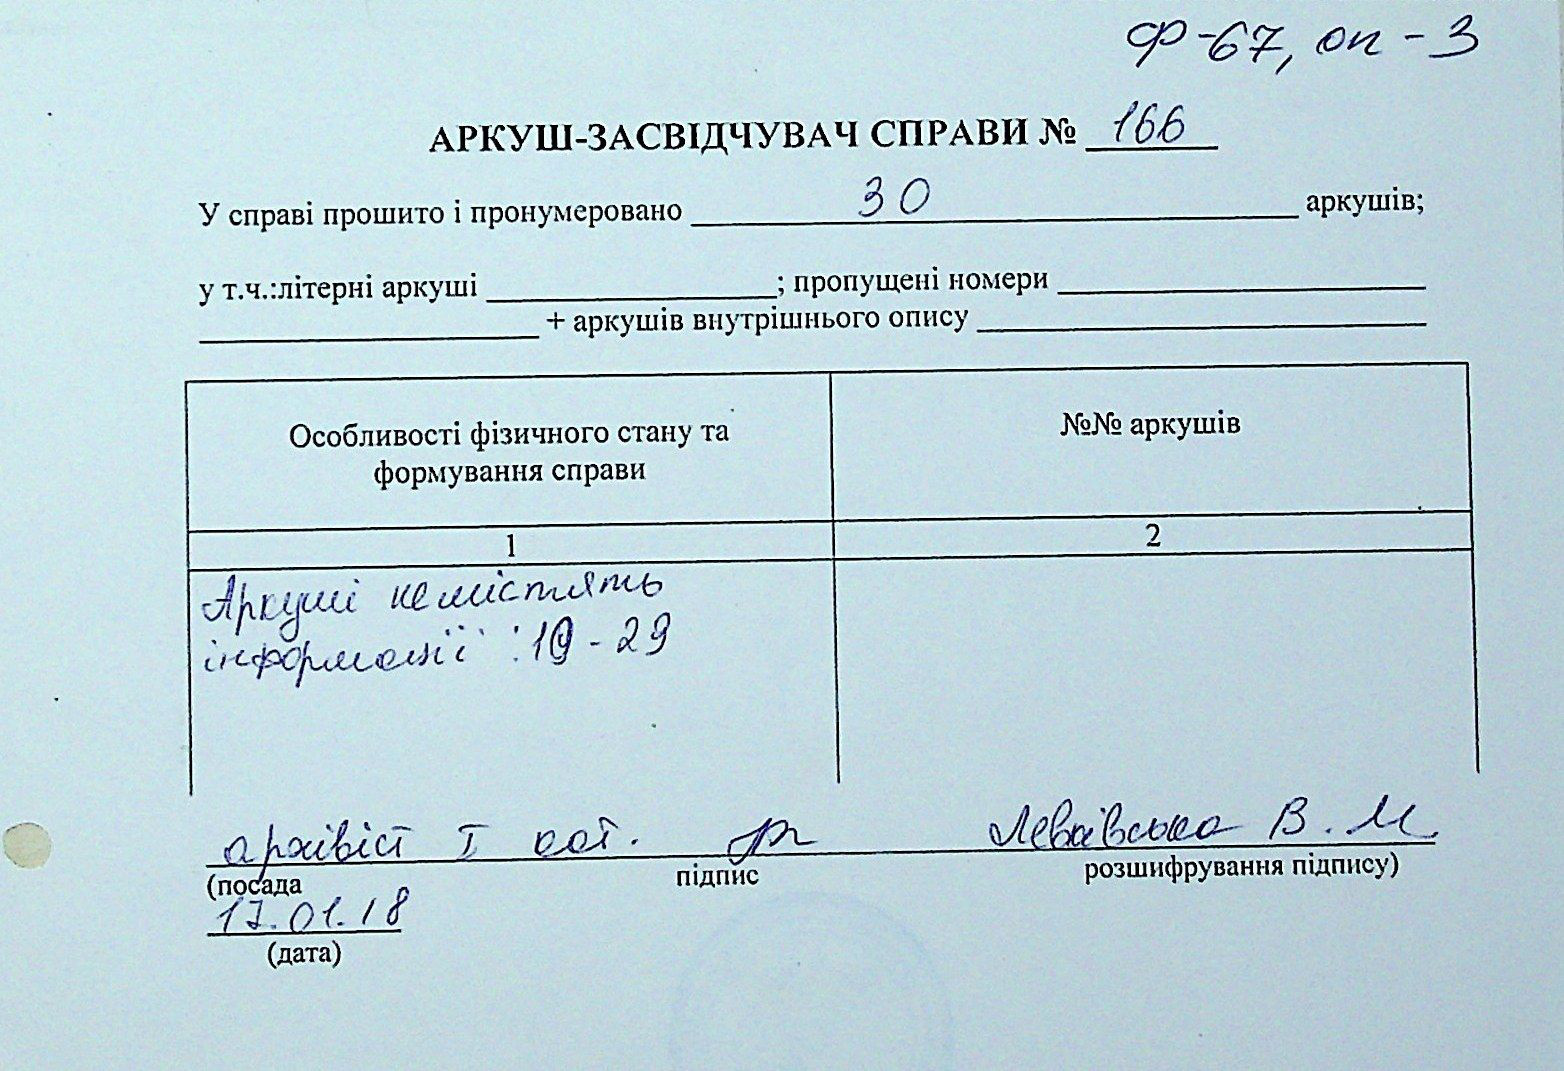 Ф-67, оп-3
АРКУШ-ЗАСВІДЧУВАЧ СПРАВИ № 166
У справі прошито і пронумеровано 30 аркушів;
у т.ч.:літерні аркуші ; пропущені номери
+ аркушів внутрішнього опису
Особливості фізичного стану та
формування справи
№№ аркушів
1 2
Аркуші не містять
інформації : - 29
архівіст I кат. В. М
(посада підпис розшифрування підпису)
17.01.18
(дата)